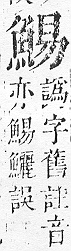 鯣
譌字舊註音
亦鯣鱺誤